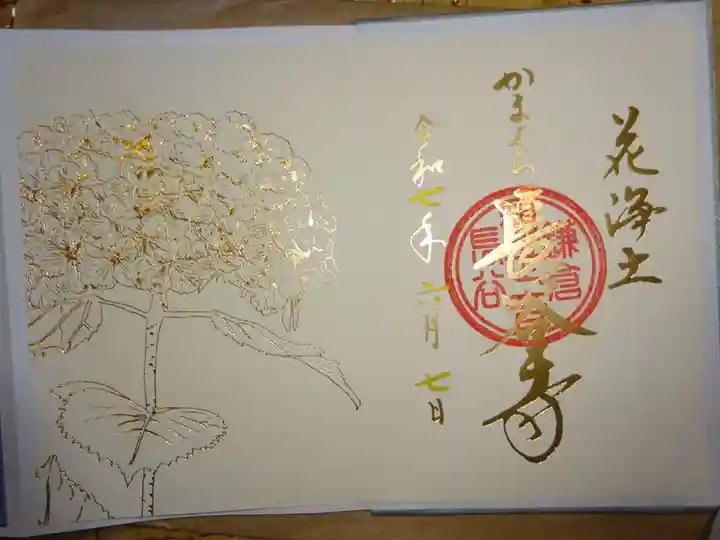 花浄土
かまくら
長谷寺
鎌倉
長谷
令和七年六月七日